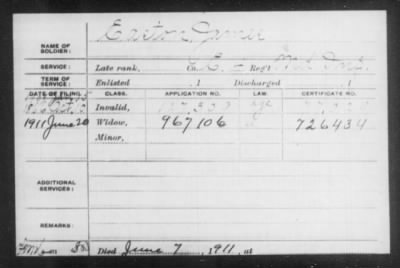 NAME OF SOLDIER: Easton, James
SERVICE: Late rank, Co. E. Reg't Inf.
TERM OF SERVICE: Enlisted , 1 Discharged , 1
DATE OF FILING. CLASS. APPLICATION NO. LAW. CERTIFICATE NO.
Invalid,
1911 June 20 Widow, 967106 726434
Minor,
ADDITIONAL SERVICES:
REMARKS:
Died June 7, 1911, at